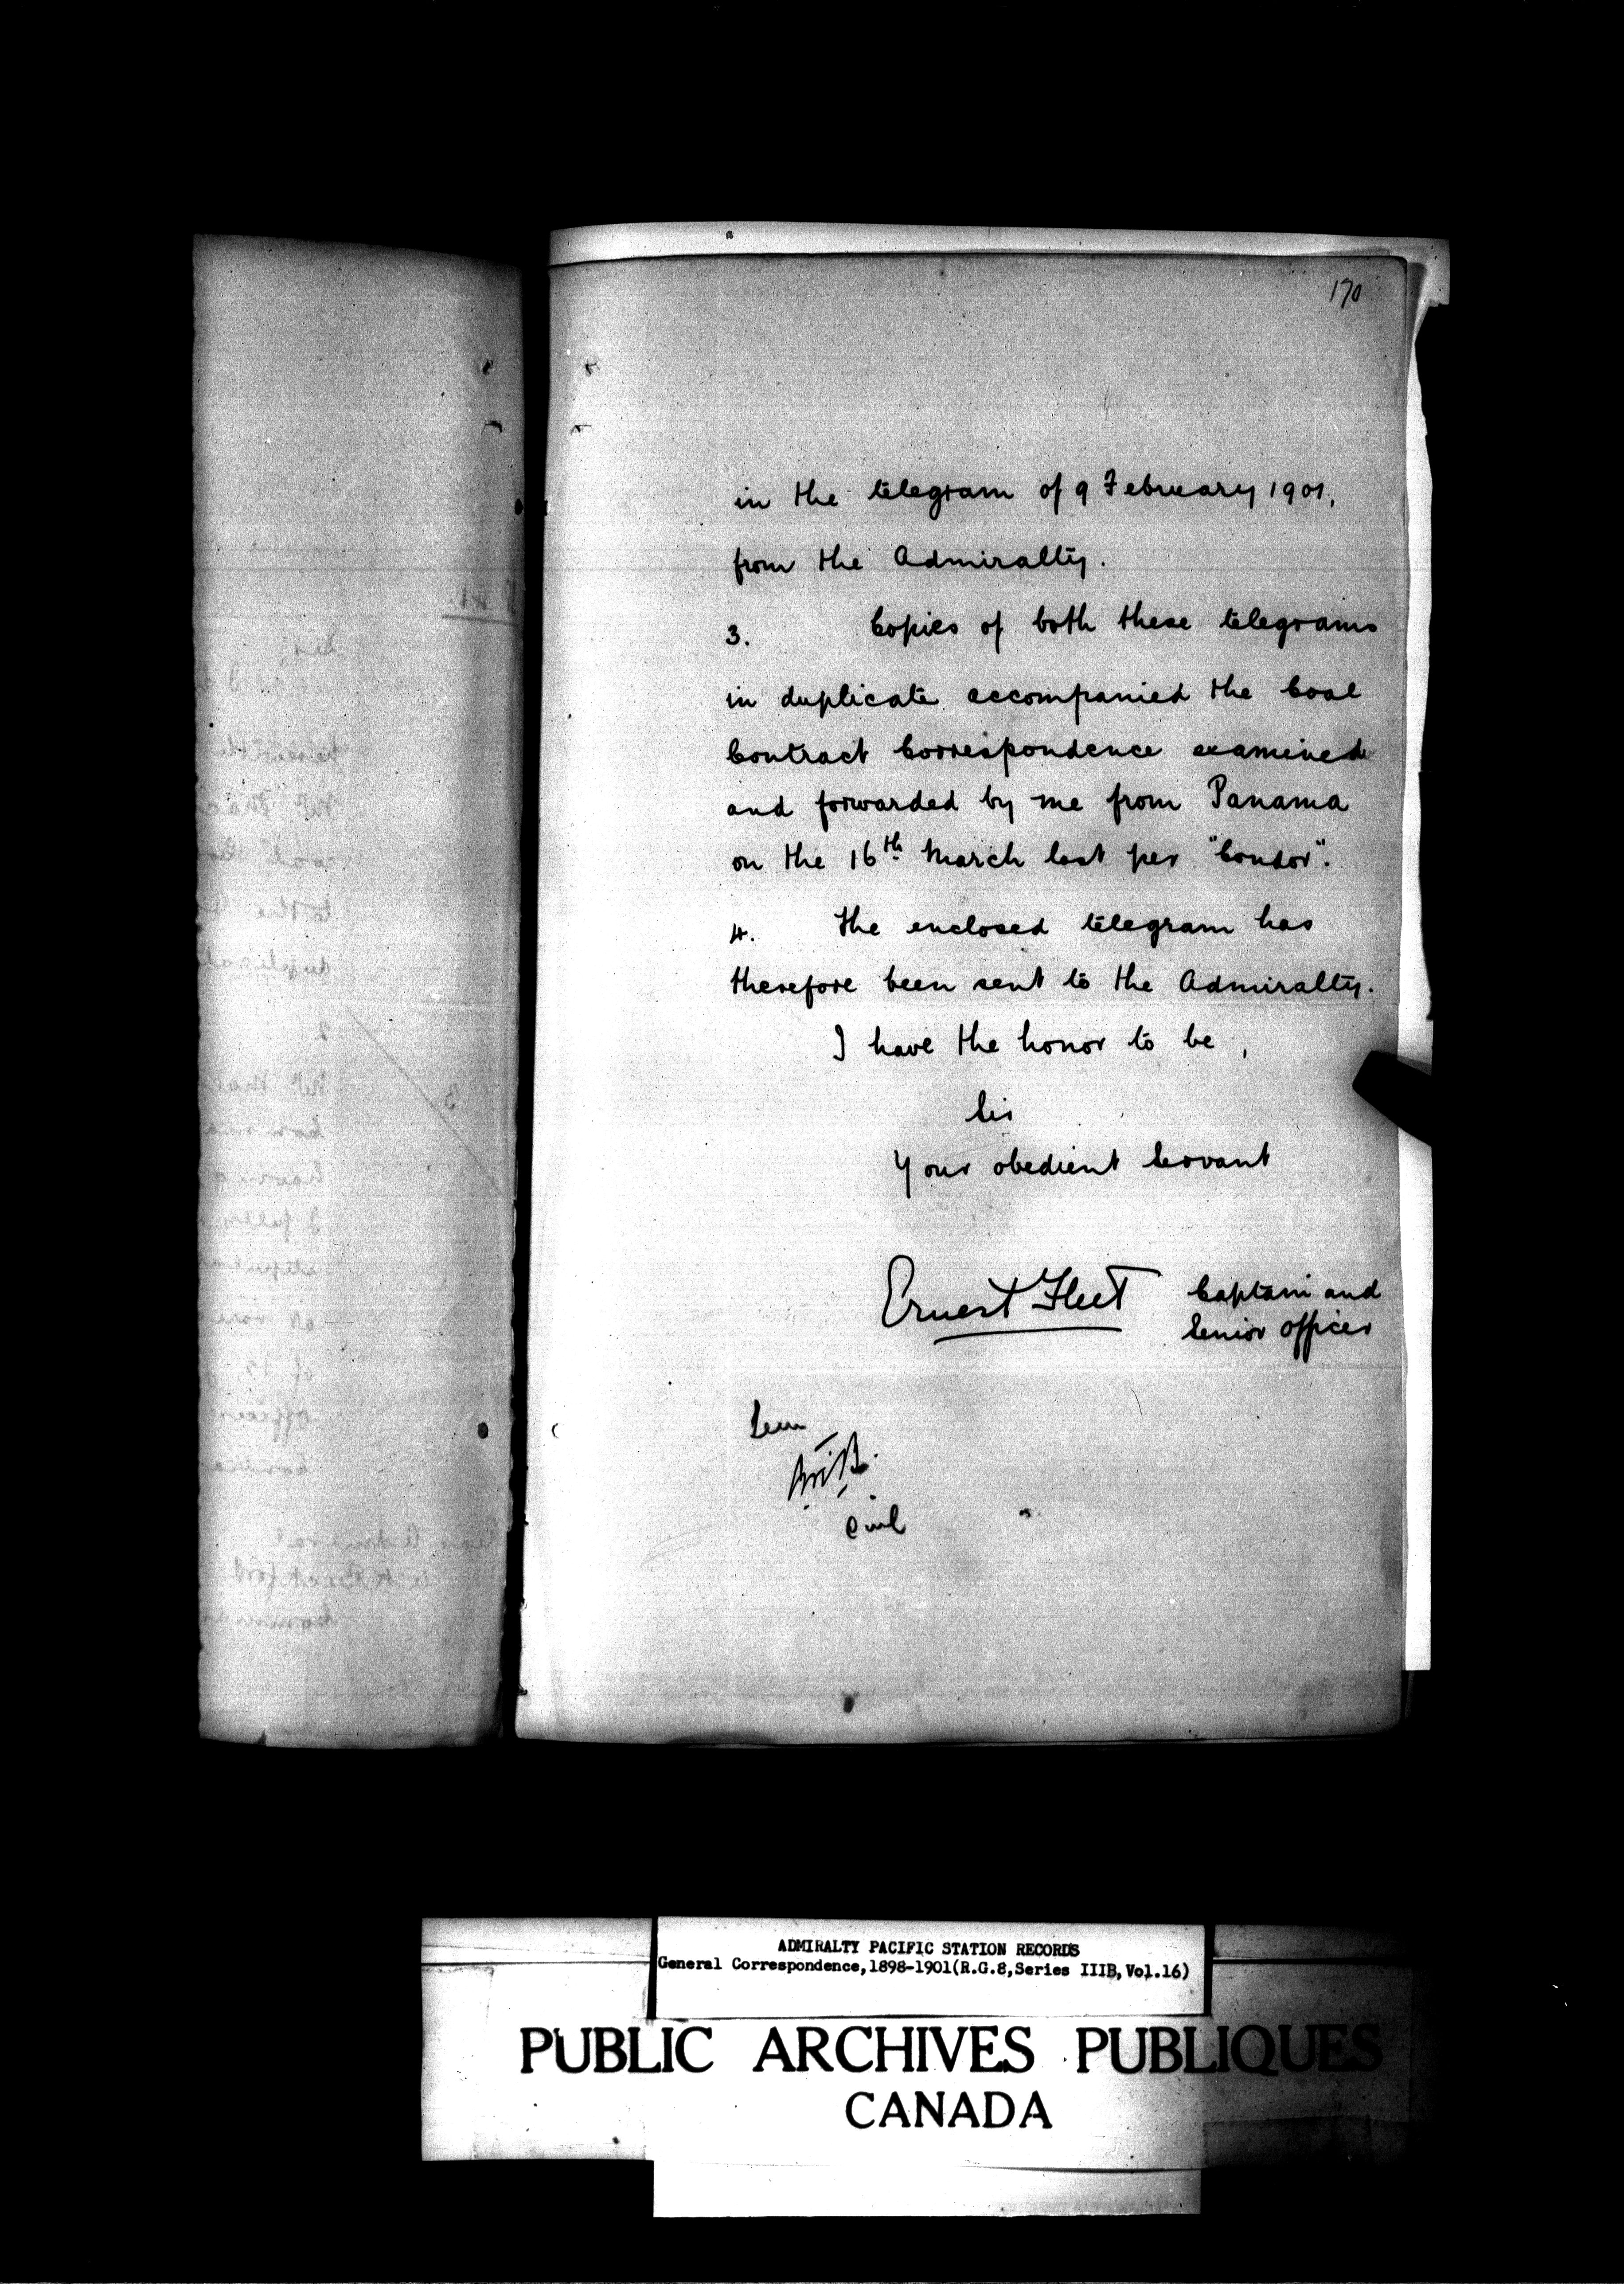 170
in the telegram of 9 February 1901,
from the Admiralty.
3. Copies of both these telegrams
in duplicate accompanied the Coal
Contract Correspondence examined
and forwarded by me from Panama
on the 16th March last per "Condor".
4. The enclosed telegram has
therefore been sent to the Admiralty.
I have the honor to be,
Sir
Your obedient Servant
Ernest Fleet Captain and
Senior Officer
ADMIRALTY PACIFIC STATION RECORDS
General Correspondence, 1898-1901(R.G.8, Series IIIB, Vol.16)
PUBLIC ARCHIVES PUBLIQUES
CANADA